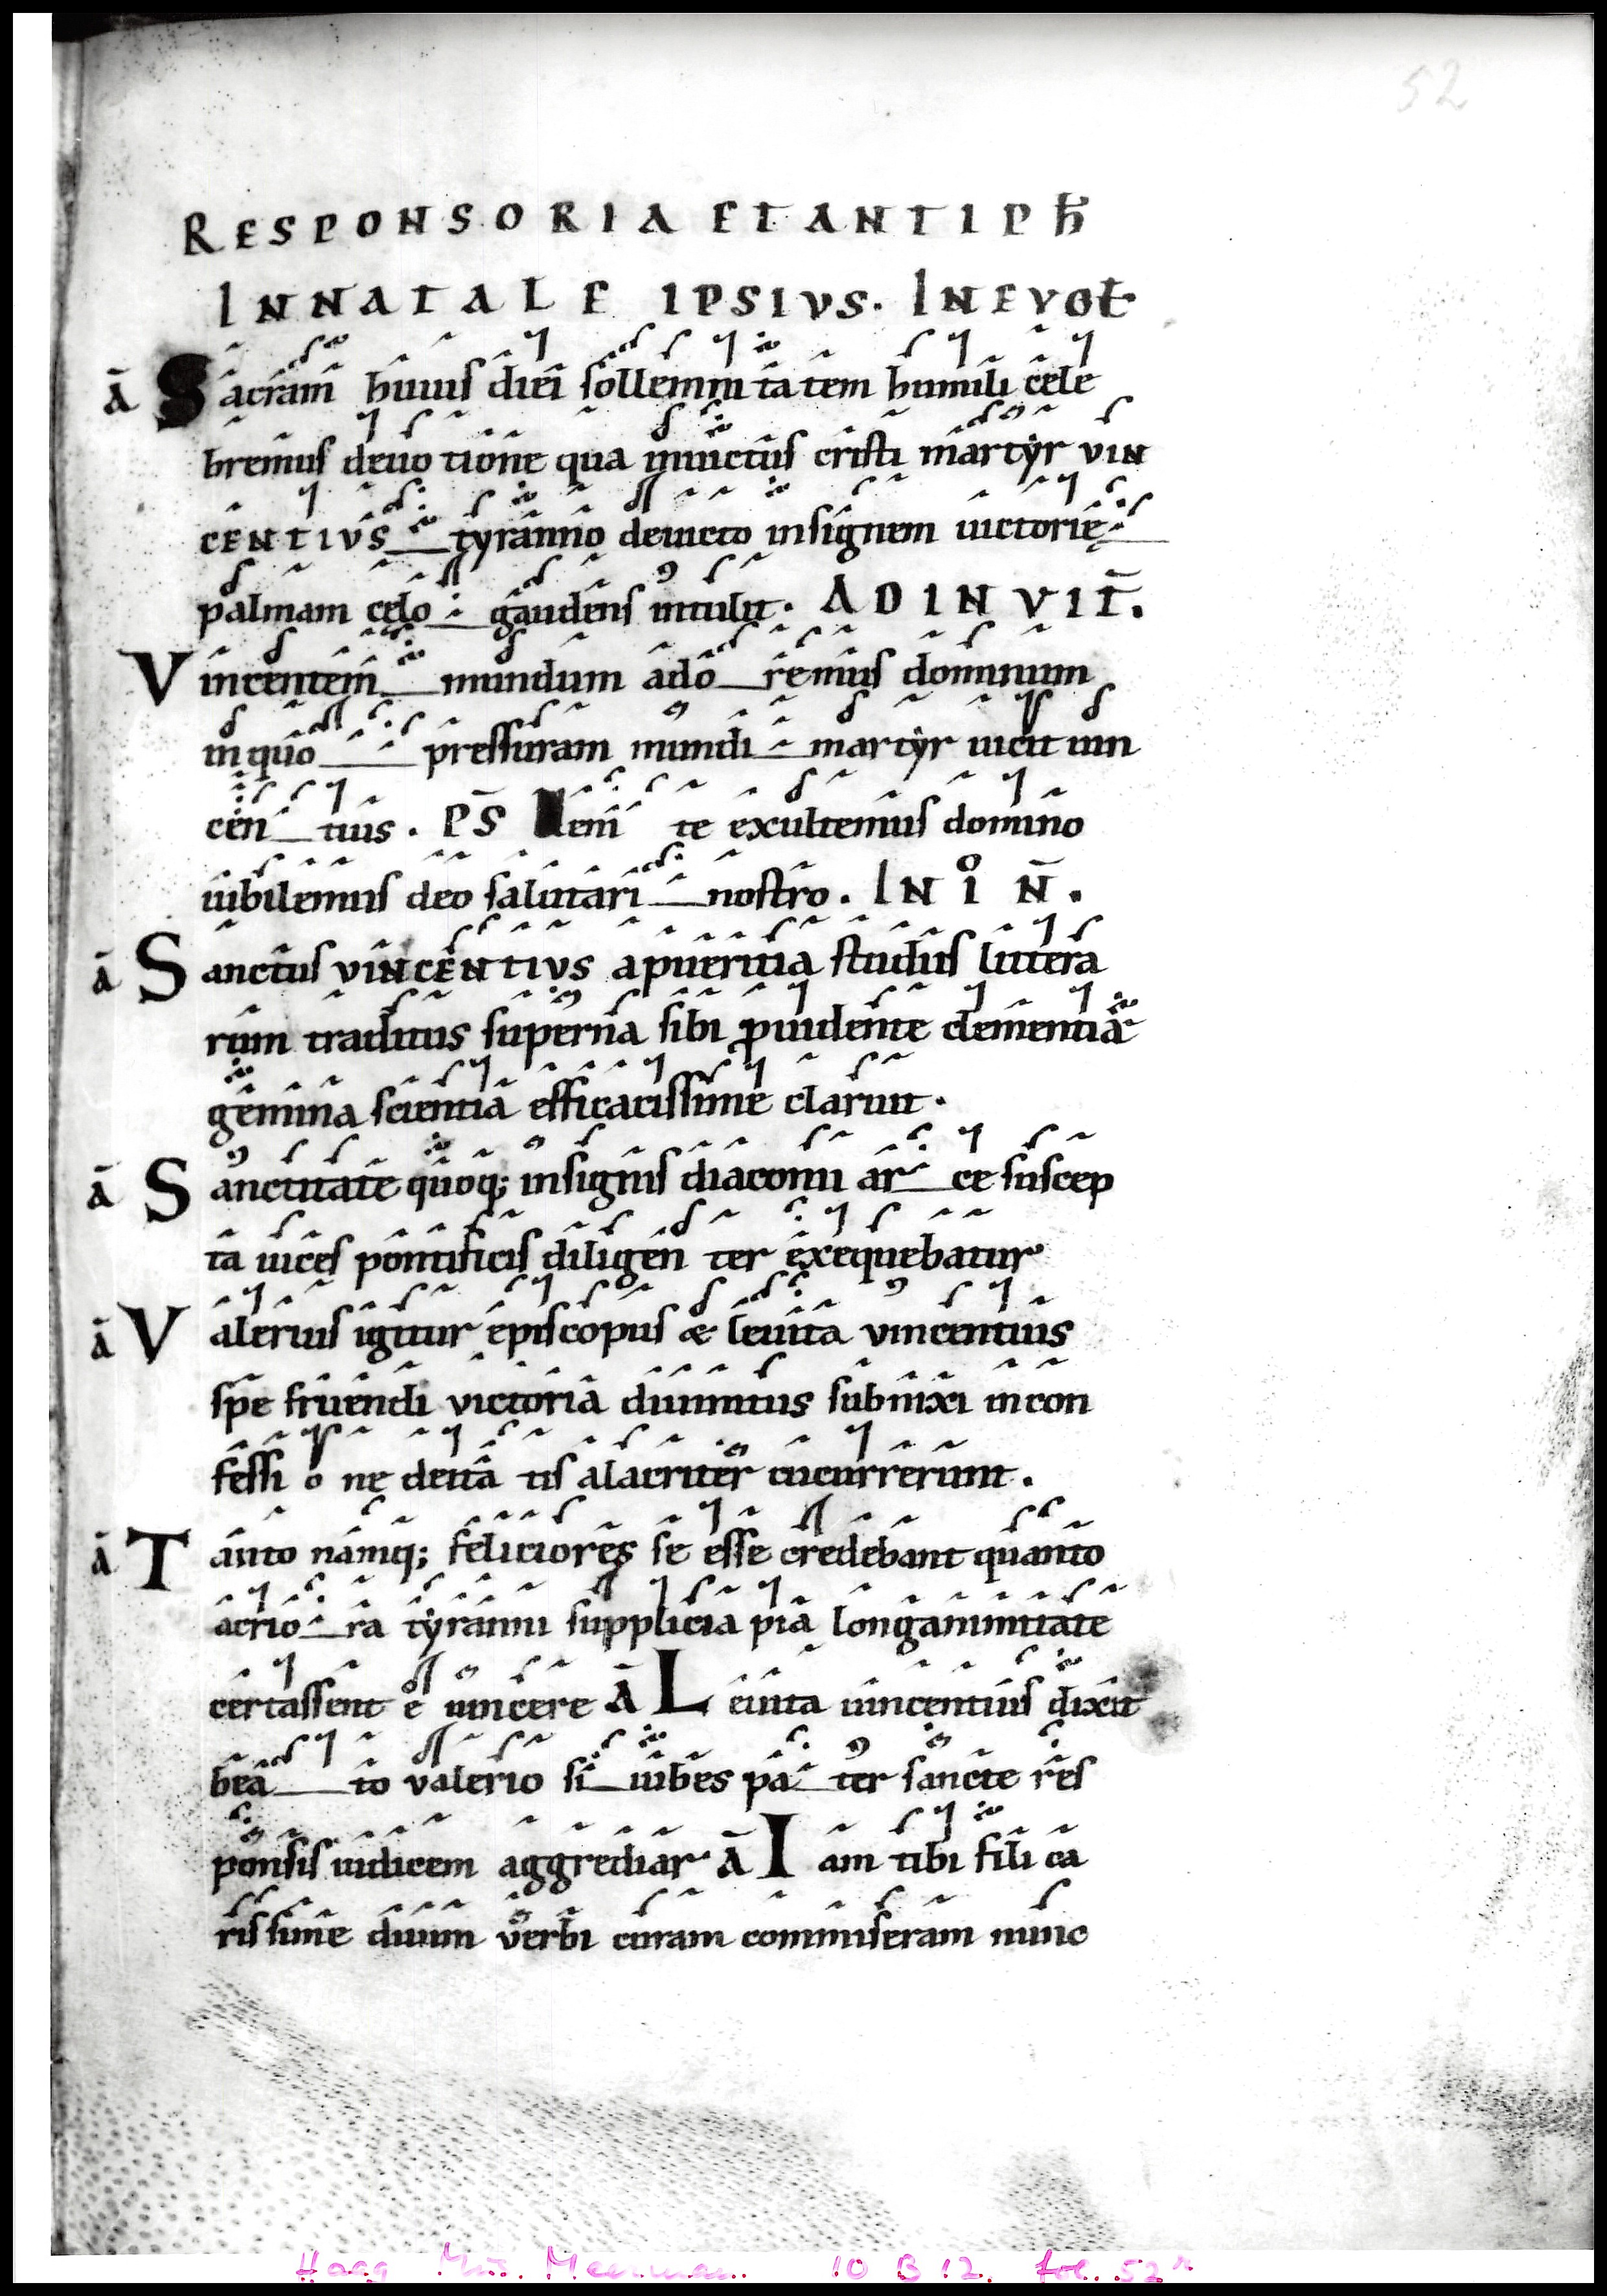 52
RESPONSORIA ET ANTIPħ
IN NATALE IPSIVS. IN EVOŁ
ā Sacram huius diei sollemni ta tem humili cele
bremus deuo tione qua inuictus cristi martyr VIN
CENTIVS tyranno deuicto insignem uictorię
palmam celo gaudens intulit. AD INVIT̄.
Vincentem mundum ado remus dominum
in quo pressuram mundi martyr uicit uin
cen tius. PS̄ Veni te exultemus domino
iubilemus deo salutari nostro. IN I° N̄.
ā Sanctus VINCENTIVS a pueritia studiis littera
rum traditus superna sibi ꝓuidente clementia
gemina scientia efficacissime claruit.
ā Sanctitate quoq; insignis diaconii ar ce suscep
ta uices pontificis diligen ter exequebatur
ā Valerius igitur episcopus & leuita vincentius
spe fruendi victoria diuinitus subnixi in con
fessi o ne deita tis alacriter cucurrerunt.
ā Tanto namq; feliciores se esse credebant quanto
acrio ra tyranni supplicia pia longanimitate
certassent e uincere Ā Leuita uincentius dixit
bea to valerio si iubes pa ter sancte res
ponsis iudicem aggrediar Ā Iam tibi fili ca
rissime diuini verbi curam commiseram nunc
Haag Mus. Meerman. 10 B 12. fol. 52r